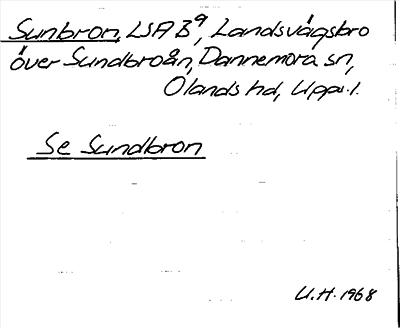 Sunbron, LSA B⁹, Landsvägsbro
över Sundbroån, Dannemora sn,
Olands hd, Upps. l.
Se Sundbron
U.H. 1968